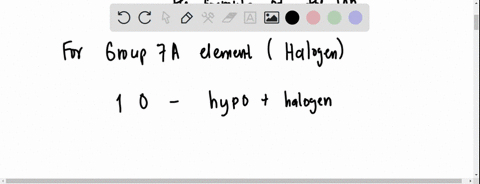 For Group 7A element (Halogen)
1 O - hypo + halogen